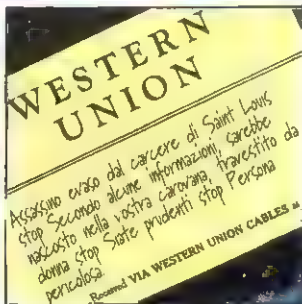 WESTERN
UNION
Assassino evaso dal carcere di Saint Louis
stop Secondo alcune informazioni, sarebbe
nascosto nella vostra carovana, travestito da
donna stop Siate prudenti stop Persona
pericolosa.
Received VIA WESTERN UNION CABLES